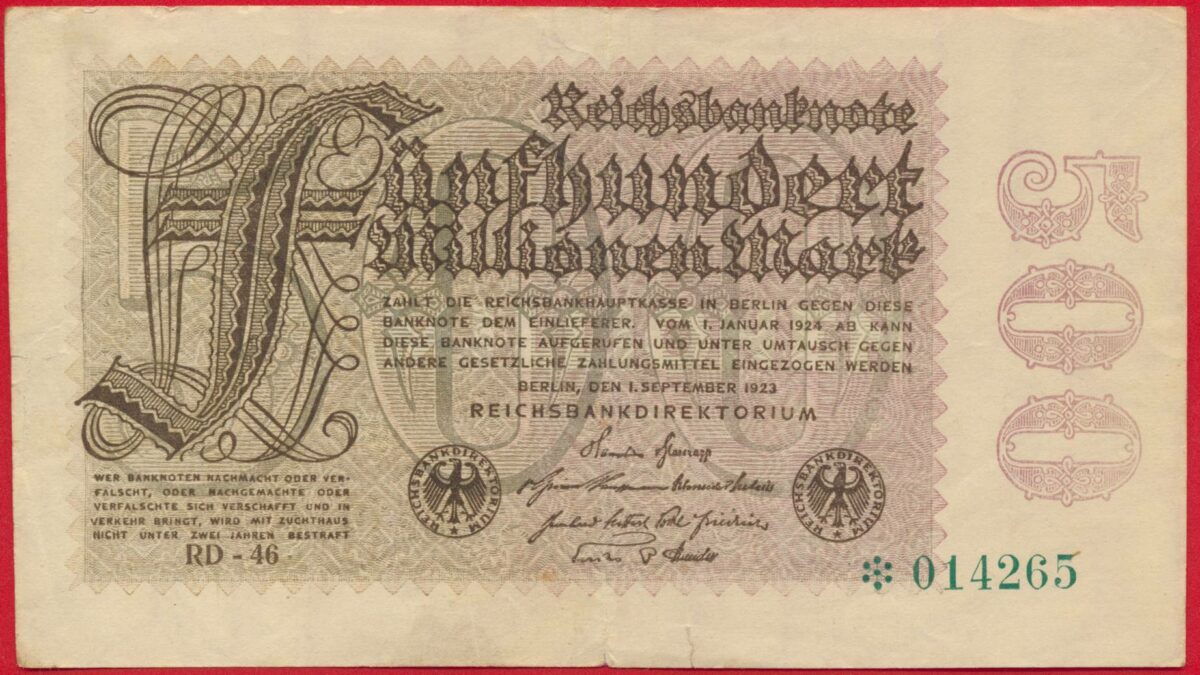 Reichsbanknote
Fünfhundert
Millionen Mark
ZAHLT DIE REICHSBANKHAUPTKASSE IN BERLIN GEGEN DIESE
BANKNOTE DEM EINLIEFERER. VOM 1. JANUAR 1924 AB KANN
DIESE BANKNOTE AUFGERUFEN UND UNTER UMTAUSCH GEGEN
ANDERE GESETZLICHE ZAHLUNGSMITTEL EINGEZOGEN WERDEN
BERLIN, DEN 1. SEPTEMBER 1923
REICHSBANKDIREKTORIUM
REICHSBANKDIREKTORIUM
REICHSBANKDIREKTORIUM
WER BANKNOTEN NACHMACHT ODER VER-
FÄLSCHT, ODER NACHGEMACHTE ODER
VERFÄLSCHTE SICH VERSCHAFFT UND IN
VERKEHR BRINGT, WIRD MIT ZUCHTHAUS
NICHT UNTER ZWEI JAHREN BESTRAFT
RD - 46
500
014265